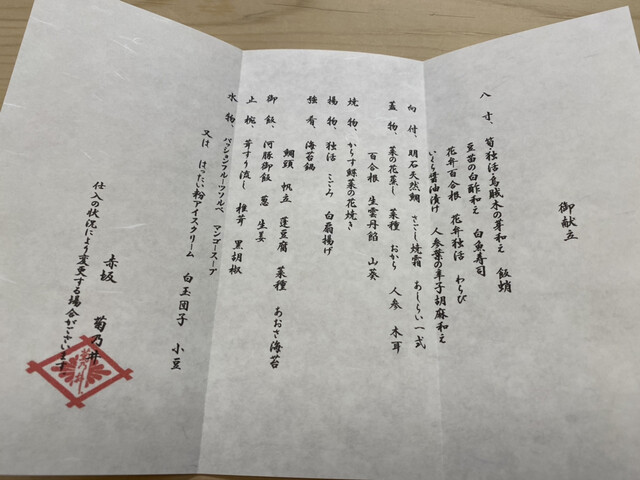 御献立
八寸、筍独活烏賊木の芽和え 飯蛸
豆苗の白酢和え 白魚寿司
花弁百合根 花弁独活 わらび
いくら醤油漬け 人参葉の辛子胡麻和え
向付、明石天然鯛 さごし焼霜 あしらい一式
蓋物、菜の花蒸し 菜種 おから 人参 木耳
百合根 生雲丹餡 山葵
焼物、からす鰆菜の花焼き
揚物、独活 こごみ 白扇揚げ
強肴、海苔鍋
鯛頭 帆立 蓬豆腐 菜種 あおさ海苔
御飯、河豚御飯 葱 生姜
止椀、茸すり流し 椎茸 黒胡椒
水物、パッションフルーツソルベ マンゴースープ
又は はったい粉アイスクリーム 白玉団子 小豆
赤坂 菊乃井
仕入の状況により変更する場合がございます